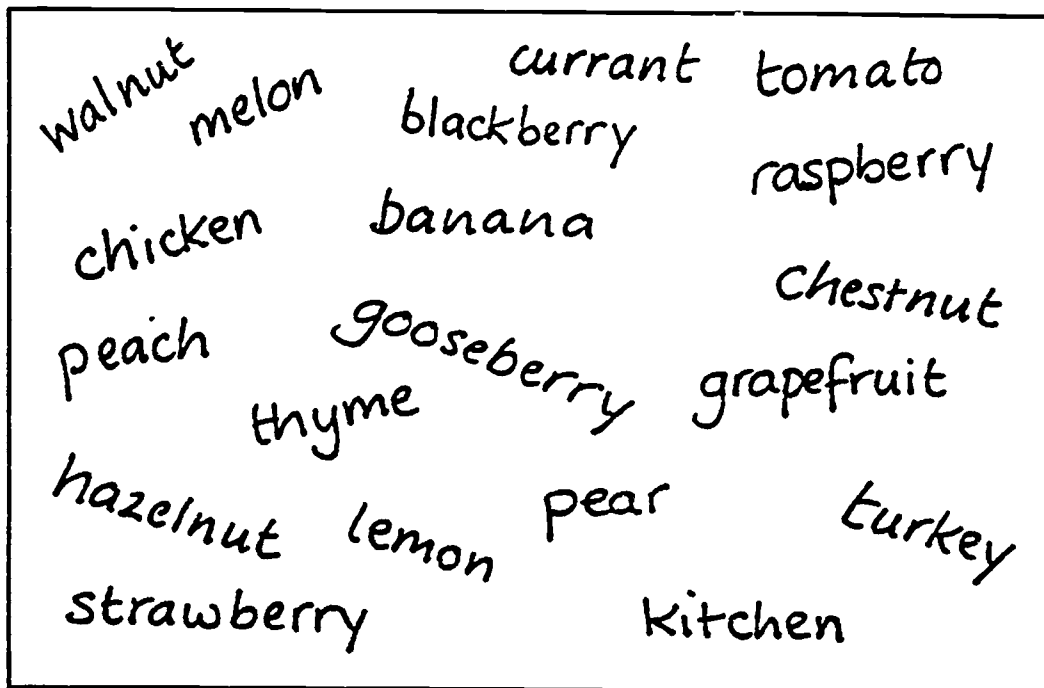 walnut
melon
currant
tomato
blackberry
raspberry
chicken
banana
chestnut
peach
gooseberry
grapefruit
thyme
hazelnut
lemon
pear
turkey
strawberry
kitchen